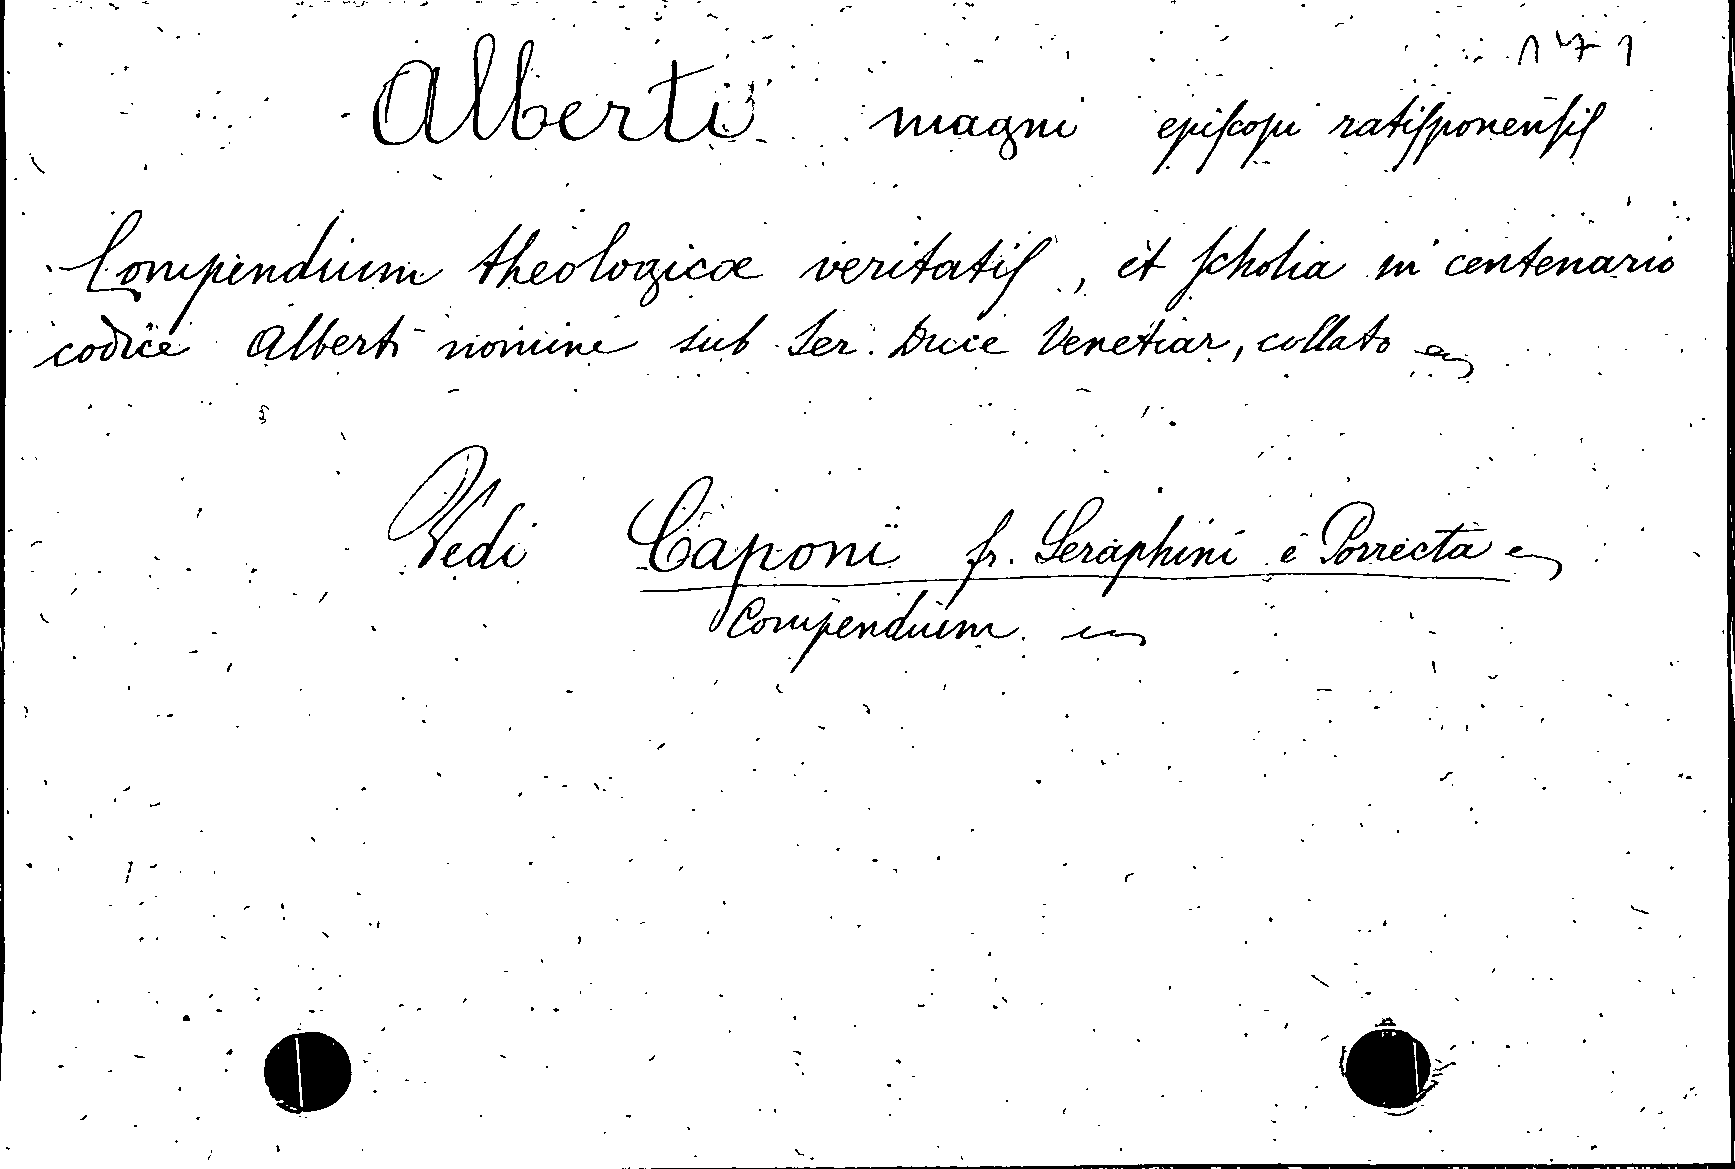 171
Alberti magni epiſcopi ratiſponenſiſ
Compendium theologicæ veritatiſ, et ſcholia in centenario
codice Alberti nomine sub Ser. Duce Venetiar, collato
Vedi Caponi fr. Seraphini è Porrecta
Compendium.